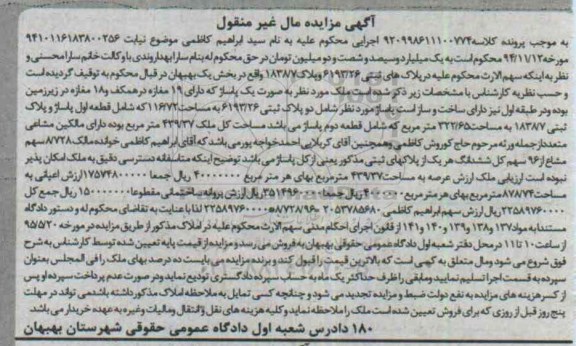 آگهی مزایده مال غیر منقول
به موجب پرونده کلاسه ۹۲۰۹۹۸۶۱۱۱۰۰۷۷۴ اجرایی محکوم علیه به نام سید ابراهیم کاظمی موضوع نیابت ۹۴۱۰۱۱۶۱۸۳۸۰۰۲۵۶
مورخه ۹۴/۱۱/۱۳ محکوم است به یک میلیارد و سیصد و شصت و دو میلیون تومان در حق محکوم له بنام سارا بهداروندی با وکالت خانم سارا محسنی و
نظر به اینکه سهم الارث محکوم علیه در پلاک های ثبتی ۶۱۹۳/۲۶ و پلاک ۱۸۳۸۷ واقع در بخش یک بهبهان در قبال محکوم به توقیف گردیده است
و حسب نظریه کارشناس با مشخصات زیر ذکر شده است ملک مورد نظر به صورت یک پاساژ که دارای ۱۹ مغازه در همکف و ۱۸ مغازه در زیرزمین
بوده و در طبقه اول نیز دارای ساخت و ساز است پاساژ مورد نظر شامل دو پلاک ثبتی ۶۱۹۳/۲۶ به مساحت ۱۱۶۷۲ که شامل قطعه اول پاساژ و پلاک
ثبتی ۱۸۳۸۷ به مساحت ۳۲۲/۶۵ متر مربع که شامل قطعه دوم پاساژ می باشد مساحت کل ملک ۴۳۹/۳۷ متر مربع بوده دارای مالکین مشاعی
متعدد از جمله ورثه مرحوم حاج کوروش کاظمی و همچنین آقای کربلایی احمد خواجه پور می باشد که آقای ابراهیم کاظمی خوانده مالک ۸۷۲۸ سهم
مشاع از ۹۶ سهم کل ششدانگ هر یک از پلاکهای ثبتی مذکور یعنی از کل پاساژ می باشد توضیح اینکه متاسفانه دسترسی دقیق به ملک امکان پذیر
نبوده است ارزیابی ملک ارزش عرصه به مساحت ۴۳۹/۳۷ مترمربع بهای هر متر مربع ۴۰۰۰۰۰۰۰ ریال جمعا ۱۷۵۷۴۸۰۰۰۰۰ ریال ارزش اعیانی به
مساحت ۸۷۸/۷۴ مترمربع بهای هر متر مربع ۴۰۰۰۰۰۰ ریال جمعا ۳۵۱۴۹۶۰۰۰۰ ریال ارزش پروانه ساختمانی مقطوعا ۱۵۰۰۰۰۰۰۰۰ ریال جمع کل
۲۲۵۸۹۷۶۰۰۰۰ ریال ارزش سهم ابراهیم کاظمی ۲۰۵۳۷۸۵۶۸۰ لذا با عنایت به تقاضای محکوم له و دستور دادگاه
مستندا به مواد ۱۳۷ و ۱۳۸ و ۱۳۹ و ۱۴۰ و ۱۴۱ از قانون اجرای احکام مدنی سهم الارث محکوم علیه در املاک مذکور از طریق مزایده در مورخه ۹۵/۵/۲۰
از ساعت ۱۰ تا ۱۱ در محل دفتر شعبه اول دادگاه عمومی حقوقی بهبهان به فروش می رسد و مزایده از قیمت پایه تعیین شده توسط کارشناس به شرح
فوق شروع می شود و مال متعلق به کسی است که بالاترین قیمت را قبول کند و برنده مزایده می بایست ده درصد بهای ملک را فی المجلس بعنوان
سپرده به قسمت اجرا تسلیم نمایید و مابقی را ظرف حداکثر یک ماه به حساب سپرده دادگستری تودیع نماید و در صورت عدم پرداخت سپرده او پس
از کسر هزینه های مزایده به نفع دولت ضبط و مزایده تجدید می شود و چنانچه کسی تمایل به ملاحظه املاک مذکور داشته باشد می تواند در مهلت
پنج روز قبل از روزی که برای فروش تعیین شده است ملک را ملاحظه نماید و کلیه هزینه های نقل و انتقال و مالیات و غیره به عهده خریدار می باشد
۱۸۰ دادرس شعبه اول دادگاه عمومی حقوقی شهرستان بهبهان